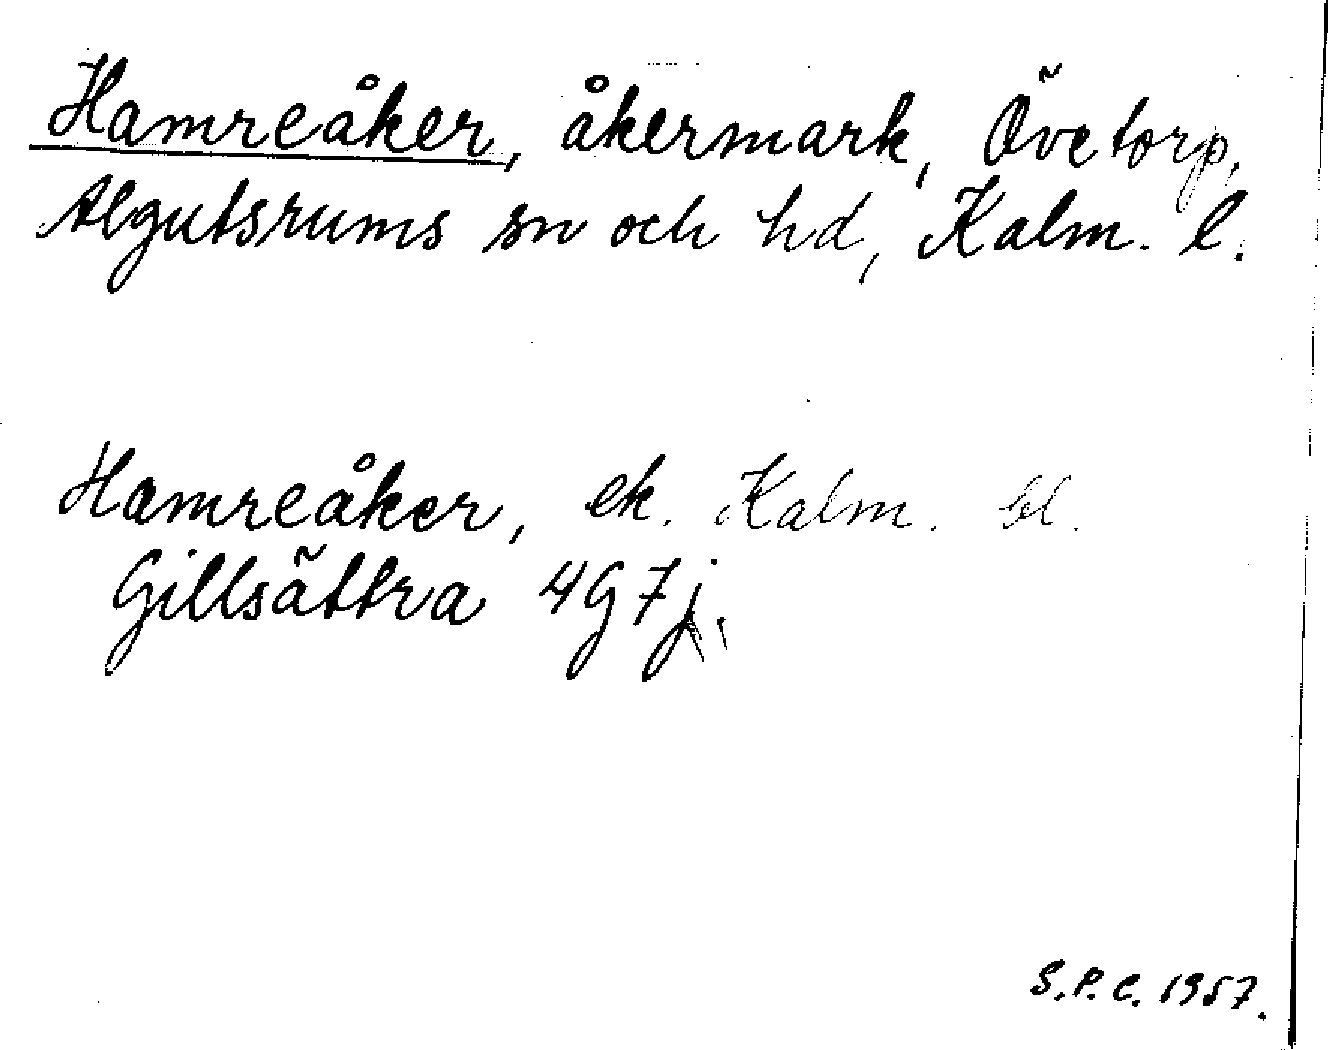 Hamreåker, åkermark, Övetorp,
Algutsrums sn och hd, Kalm. l.
Hamreåker, ek. Kalm. bl.
Gillsättra 4G7j.
S.P.C. 1957.